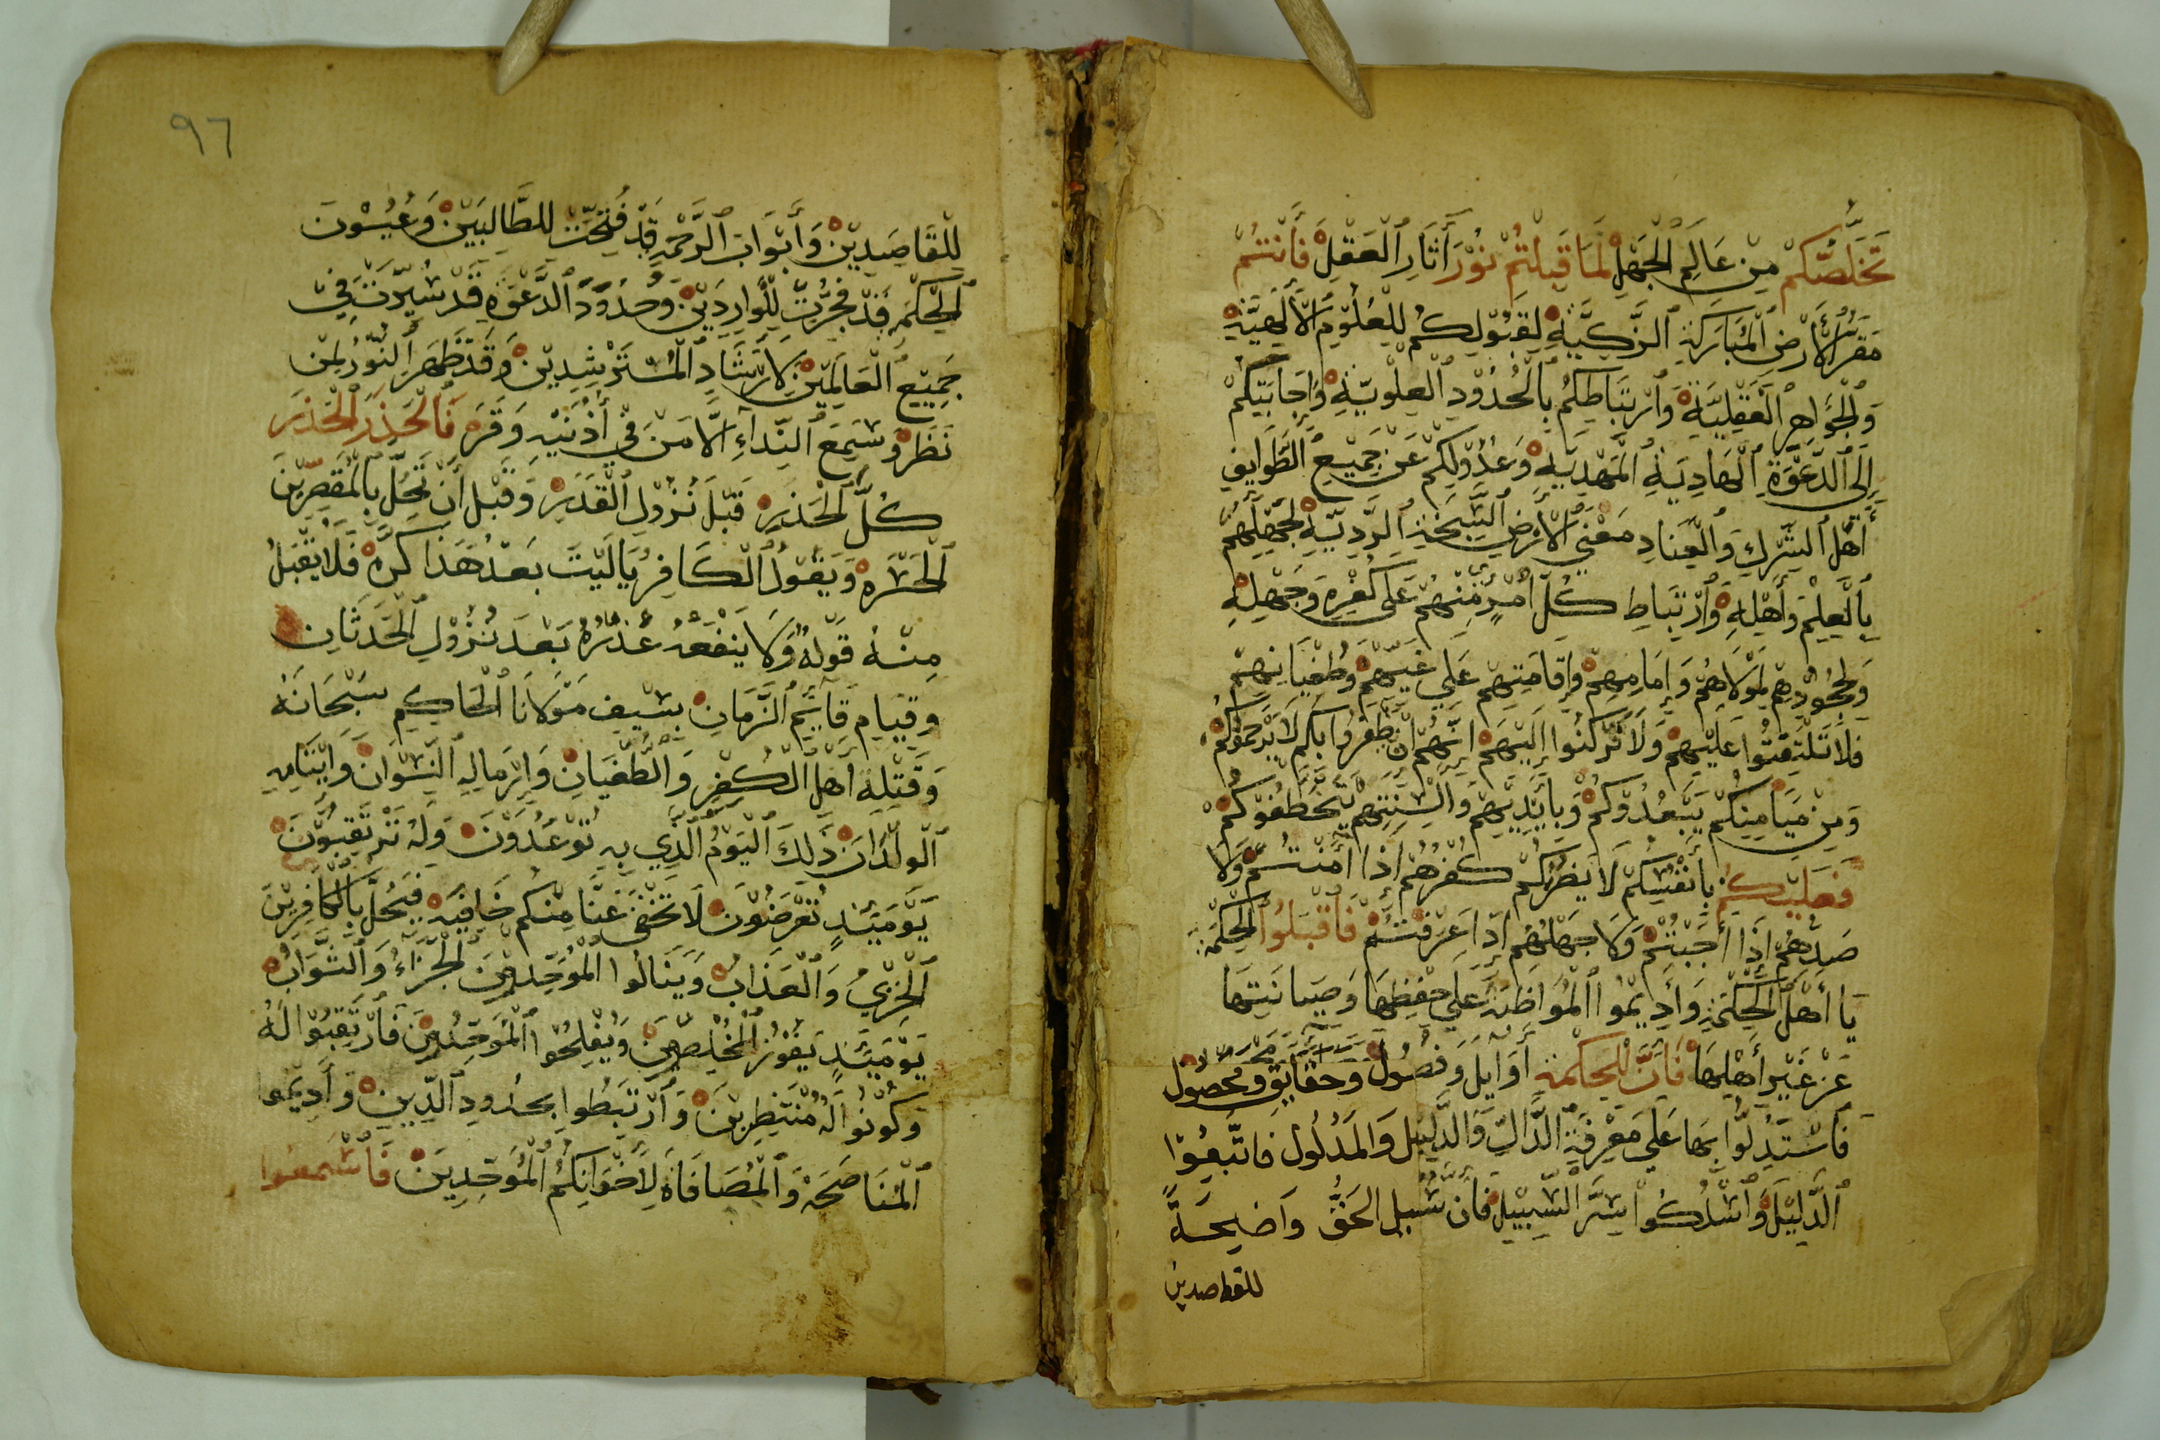 تَخَلُّصُكُمْ مِنْ عَالَمِ الْجَهْلِ لَمَا قَبِلْتُمْ نُوْرَ أَثَارِ الْعَقْلِ فَأَنْتُمْ
مَقَرُّ الْأَرْضِ الْمُبَارَكَةِ الزَّكِيَّةِ لِقَبُوْلِكُمْ لِلْعُلُوْمِ الْإِلَهِيَّةِ
وَالْجَوَاهِرِ الْعَقْلِيَّةِ وَارْتِبَاطِكُمْ بِالْحُدُوْدِ الْعِلْوِيَّةِ وَإِجَابَتِكُمْ
إِلَى الدَّعْوَةِ الْهَادِيَةِ الْمَهْدِيَّةِ وَعُدُوْلِكُمْ عَنْ جَمِيْعِ الطَّوَايِفِ
أَهْلِ الشِّرْكِ وَالْعِنَادِ مَعْنَى الْأَرْضِ السَّبَخَةِ الرَّدِيَّةِ لِجَهْلِهُمْ
بِالْعِلْمِ وَأَهْلِهِ وَارْتِبَاطِ كُلِّ امْرٍ مِنْهُمْ عَلَى كُفْرِهِ وَجَهْلِهِ
وَلِجُحُوْدِهِمْ لِمَوْلَاهُمْ وَإِمَامِهِمْ وَإِقَامَتِهِمْ عَلَى غَيِّهِمْ وَطُغْيَانِهِمْ
فَلَا تَلْتَفِتُوا عَلَيْهِمْ وَلَا تَرْكَنُوا إِلَيْهِمْ إِنَّهُمْ إِنْ يَظْفَرُوا بِكُمْ لَا يَرْحَمُوْكُمْ
وَمِنْ مَيَامِنِكُمْ يَبْعُدُوْكُمْ وَبِأَيْدِيْهِمْ وَأَلْسِنَتِهِمْ يَخْطَفُوْكُمْ
فَعَلَيْكُمْ بِأَنْفُسِكُمْ لَا يَضُرُّكُمْ كُفْرُهُمْ إِذَا أَمَنْتُمْ وَلَا
صَدُّهُمْ إِذَا أَجَبْتُمْ وَلَا جَهْلُهُمْ إِذَا عَرَفْتُمْ فَاقْبَلُوا الْحِكْمَةَ
يَا أَهْلَ الْحِكْمَةِ وَأَدِيْمُوا الْمُوَاظَبَةَ عَلَى حِفْظِهَا وَصِيَانَتِهَا
عَنْ غَيْرِ أَهْلِهَا فَإِنَّ لِلْحِكْمَةِ أَوَايِلَ وَفُصُوْلٌ وَحَقَايِقَ وَمَحْصُوْل
فَاسْتَدِلُّوا بِهَا عَلَى مَعْرِفَةِ الدَّالِّ وَالدَّلِيْلِ وَالْمَدْلُوْلِ فَاتَّبِعُوْا
الدَّلِيْلَ وَاسْلُكُوْا سِرَّ السَّبِيْلِ فَإِنَّ سُبُلَ الْحَقِّ وَاضِحَةٌ
للقاصدين
٩٦
لِلْقَاصِدِيْنَ وَأَبْوَابَ الرَّحْمَةِ قَدْ فُتِحَتْ لِلطَّالِبِيْنَ وَعُيُوْنَ
الْحِكْمَةِ قَدْ فُجِّرَتْ لِلْوَارِدِيْنَ وَحُدُوْدَ الدَّعْوَةِ قَدْ سُيِّرَتْ فِيْ
جَمِيْعِ الْعَالَمِيْنَ لِإِرْشَادِ الْمُسْتَرْشِدِيْنَ وَقَدْ ظَهَرَ النُّوْرُ لِمَنْ
نَظَرَ وَسَمِعَ النِّدَآءَ إِلَّا مَنْ فِيْ أُذُنَيْهِ وَقْرٌ فَالْحَذَرَ الْحَذَرَ
كُلَّ الْحَذَرِ قَبْلَ نُزُوْلِ الْقَدَرِ وَقَبْلَ أَنْ تَحُلَّ بِالْمُقَصِّرِيْنَ
الْحَسْرَةِ وَيَقُوْلُ الْكَافِرُ يَا لَيْتَ بَعْدَ هَذَا كَرَّةً فَلَا يُقْبَلُ
مِنْهُ قَوْلُهُ وَلَا يَنْفَعُهُ عُذْرُهُ بَعْدَ نُزُوْلِ الْحَدَثَانِ
وَقِيَامِ قَايِمِ الزَّمَانِ بِسَيْفِ مَوْلَانَا الْحَاكِمِ سُبْحَانَهُ
وَقَتْلِهِ أَهْلَ الْكُفْرِ وَالطُّغْيَانِ وَإِرْمَالِهِ النِّسْوَانَ وَإِيْتَامِهِ
الْوِلْدَانَ ذَلِكَ الْيَوْمُ الَّذِي بِهِ تُوْعَدُوْنَ وَلَهُ تَرْتَقِبُوْنَ
يَوْمَيِذٍ تُعْرَضُوْنَ لَا تَخْفَى عَنَّا مِنْكُمْ خَافِيَةٌ فَيَحُلُّ بِالْكَافِرِيْنَ
الْخِزْيُ وَالْعَذَابُ وَيَنَالُوا الْمُوَحِّدِيْنَ الْجَزَاءُ وَالثَّوَابُ
يَوْمَيِذٍ يَفُوْزُ الْمُخْلِصِيْنَ وَيُفْلِحُوا الْمُوَحِّدِيْنَ فَارْتَقِبُوْا لَهُ
وَكُوْنُوْا لَهُ مُنْتَظِرِيْنَ وَارْتَبِطُوا بِحُدُوْدِ الدِّيْنِ وَأَدِيْمُوا
الْمُنَاصَحَةَ وَالْمُصَافَاةَ لِإِخْوَانِكُمُ الْمُوَحِّدِيْنَ فَاسْمَعُوا